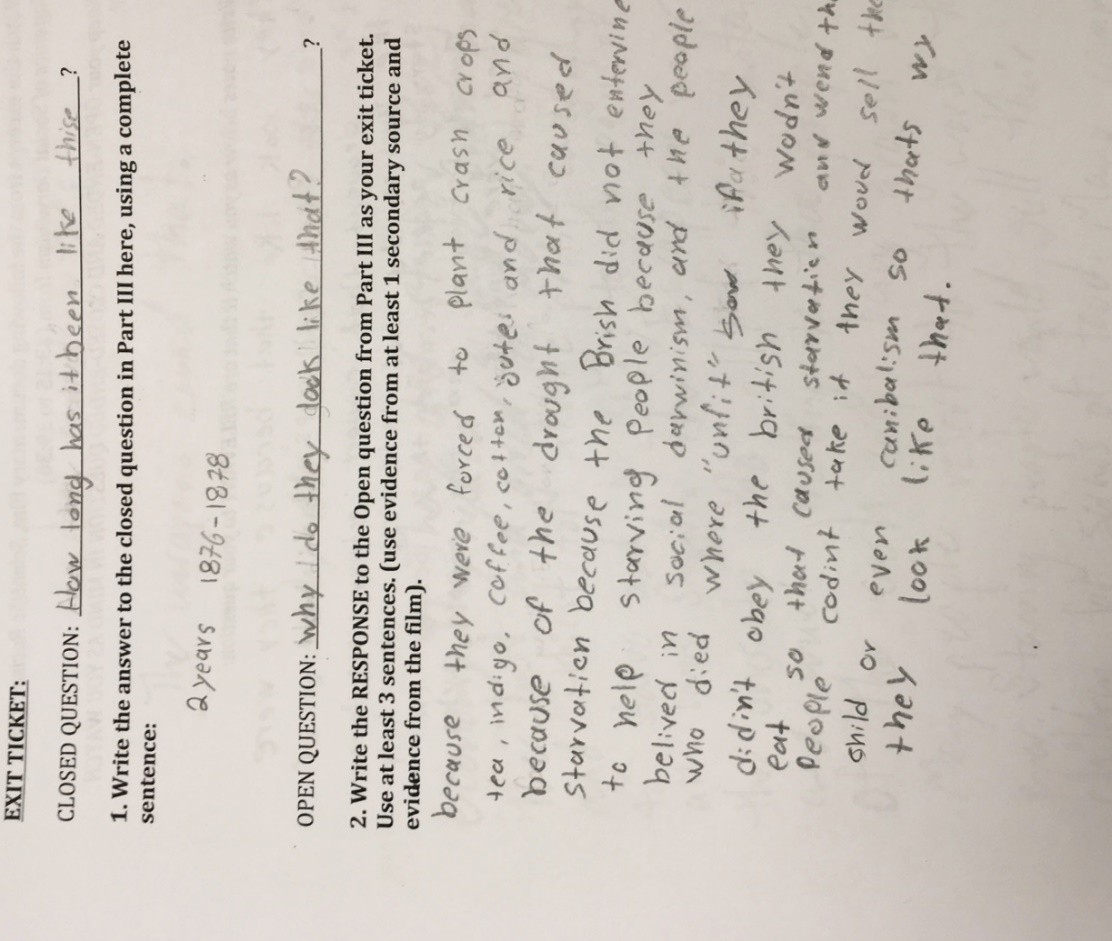 EXIT TICKET:
CLOSED QUESTION: How long has it been like thise ?
1. Write the answer to the closed question in Part III here, using a complete
sentence:
2 years 1876-1878
OPEN QUESTION: why do they look like that? ?
2. Write the RESPONSE to the Open question from Part III as your exit ticket.
Use at least 3 sentences. (use evidence from at least 1 secondary source and
evidence from the film).
because they were forced to plant crash crops
tea, indigo, coffee, cotton, jute, and rice and
because of the drought that caused
Starvation because the Brish did not entervine
to help starving people because they
belived in social darwinism, and the people
who died where "unfit" if they
didin't obey the british they wodn't
eat so that caused starvation and wend
people codint take it they woud sell
child or even canibalism so thats
they look like that.